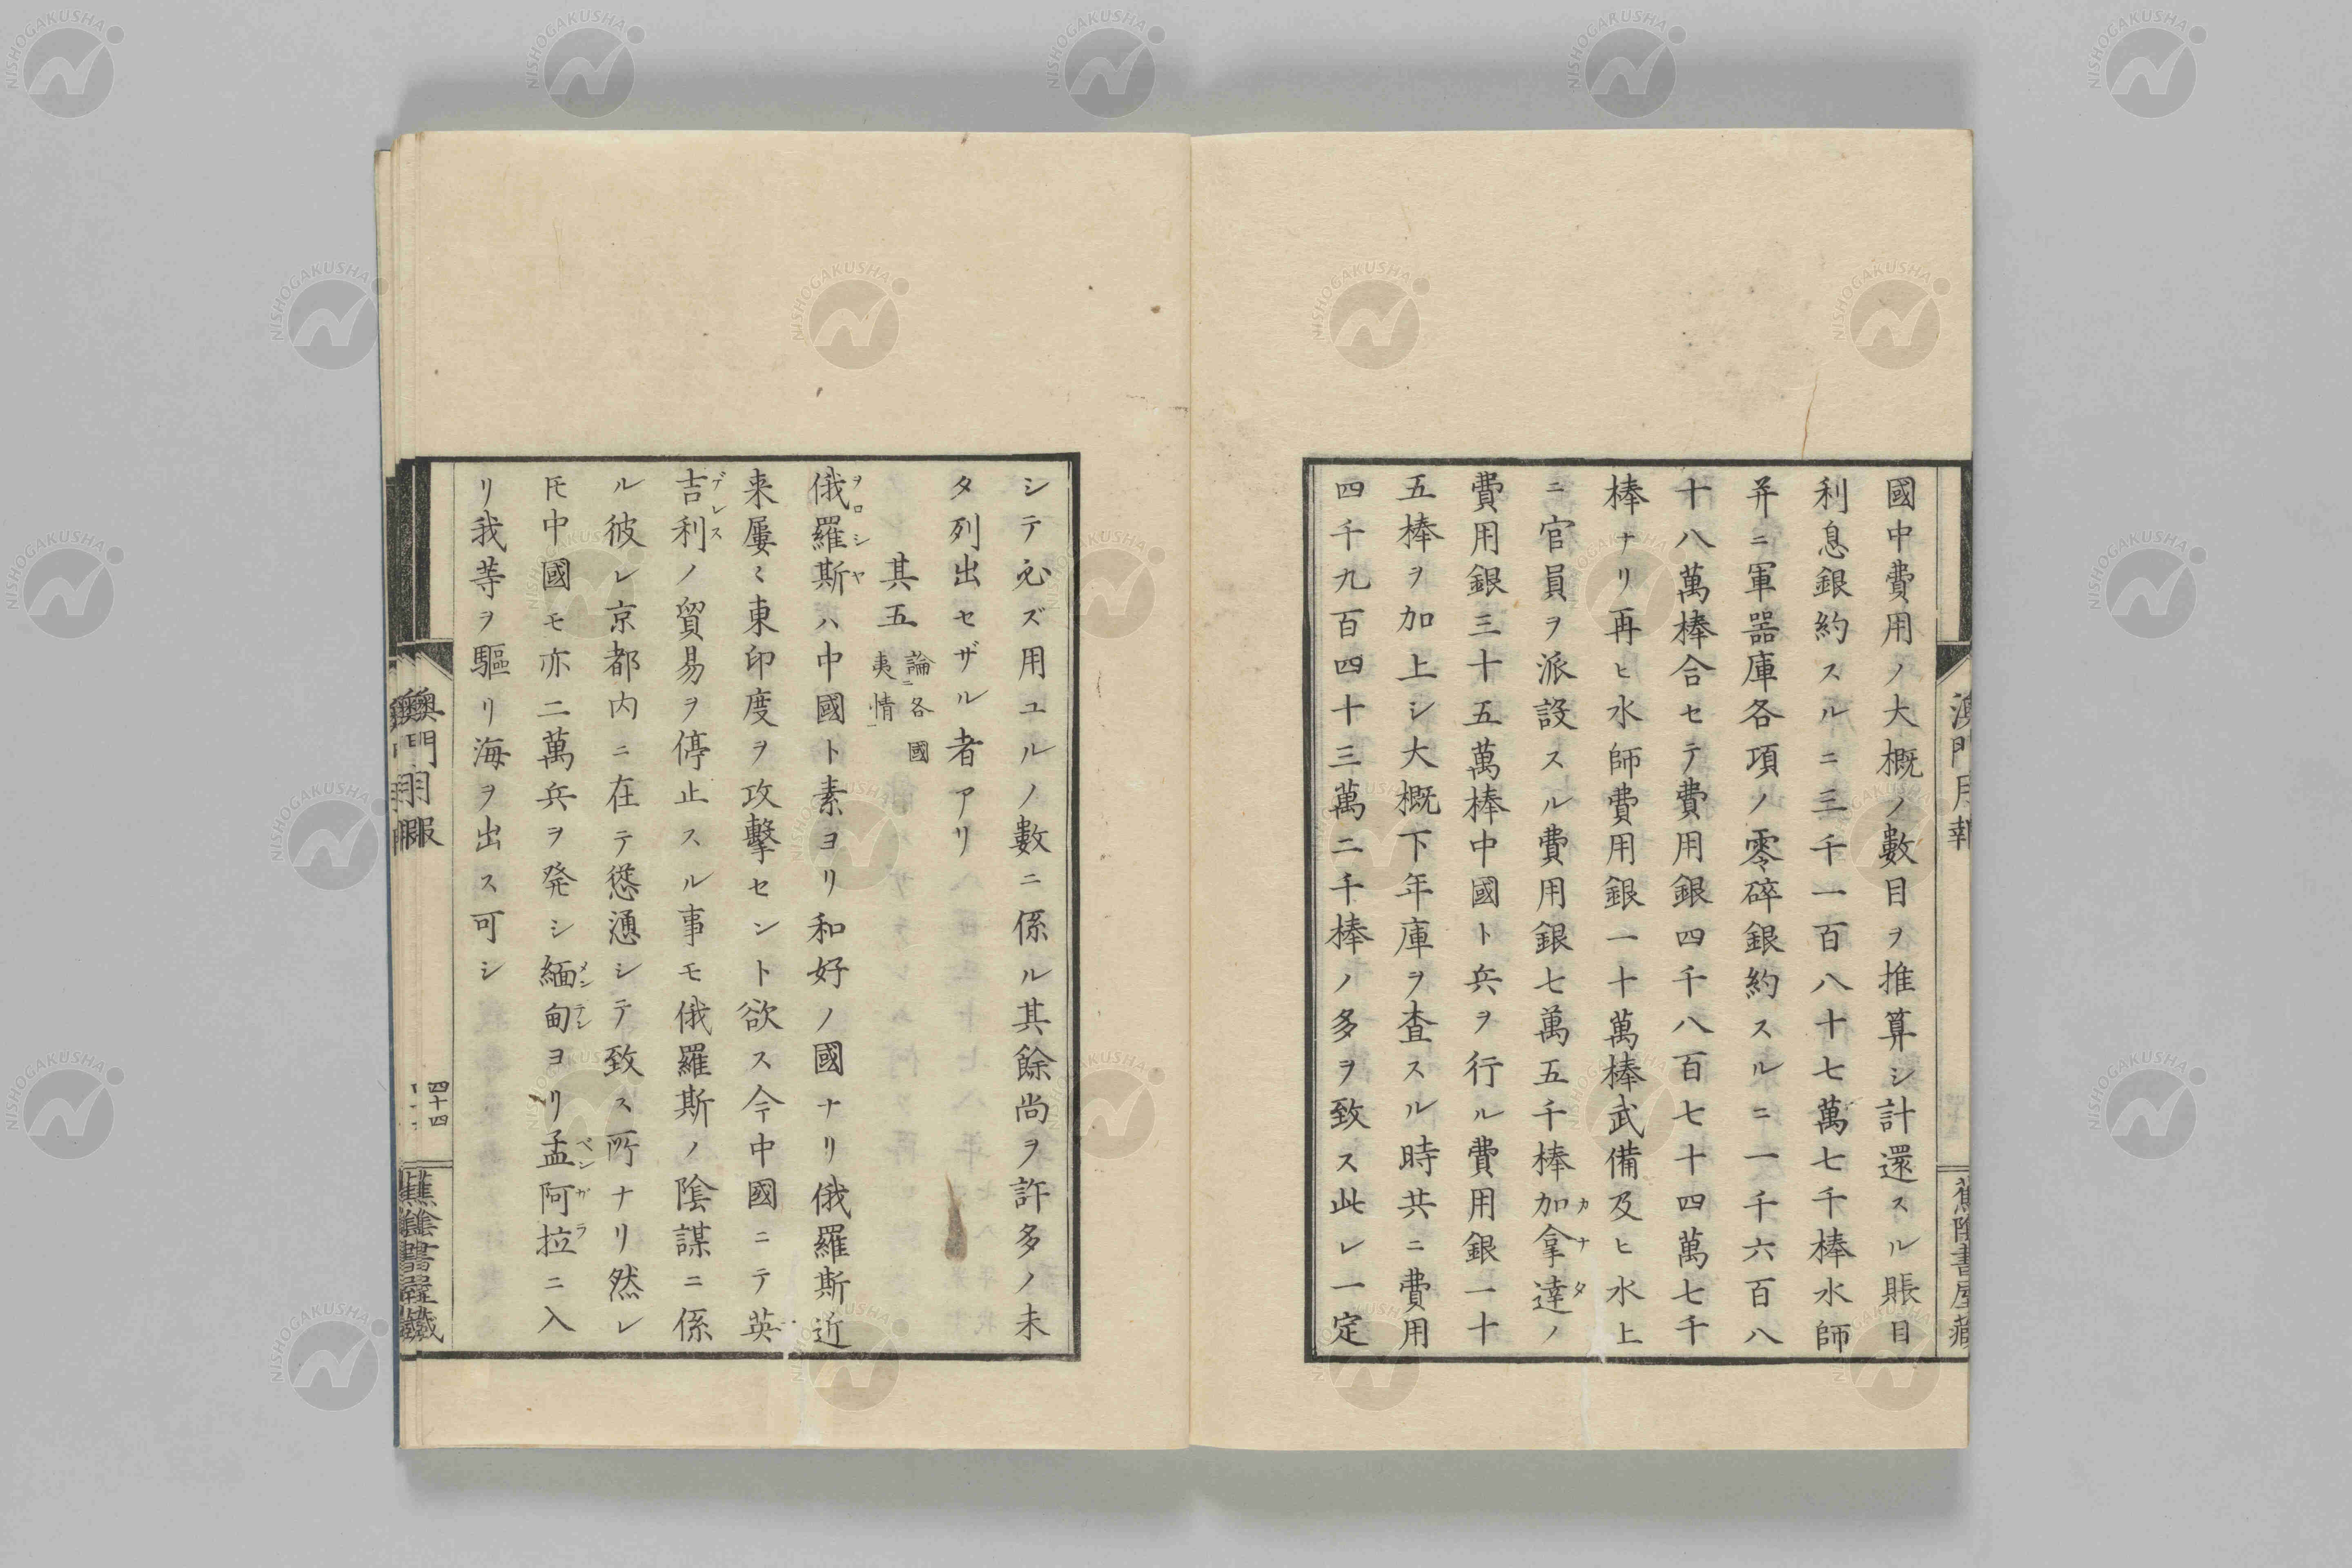 國中費用ノ大概ノ數目ヲ推算シ計還スル賬目
利息銀約スルニ三千一百八十七萬七千棒水師
并ニ軍器庫各項ノ零碎銀約スルニ一千六百八
十八萬棒合セテ費用銀四千八百七十四萬七千
棒ナリ再ヒ水師費用銀一十萬棒武備及ヒ水上
ニ官員ヲ派設スル費用銀七萬五千棒加拿達ノ
カナタ
費用銀三十五萬棒中國ト兵ヲ行ル費用銀一十
五棒ヲ加上シ大概下年庫ヲ查スル時共ニ費用
四千九百四十三萬二千棒ノ多ヲ致ス此レ一定
シテ必ズ用ユルノ數ニ係ル其餘尚ヲ許多ノ未
タ列出セザル者アリ
其五 論ニ各國
夷情一
俄羅斯ハ中國ト素ヨリ和好ノ國ナリ俄羅斯近
ヲロシヤ
来屢〻東印度ヲ攻擊セント欲ス今中國ニテ英
吉利ノ貿易ヲ停止スル事モ俄羅斯ノ陰謀ニ係
デレス
ル彼レ京都内ニ在テ慫慂シテ致ス所ナリ然レ
𪜈中國モ亦二萬兵ヲ発シ緬甸ヨリ孟阿拉ニ入
メンテン
ベンガラ
リ我等ヲ驅リ海ヲ出ス可シ
澳門月報
四十四
蕉陰書屋藏
NISHOGAKUSHA